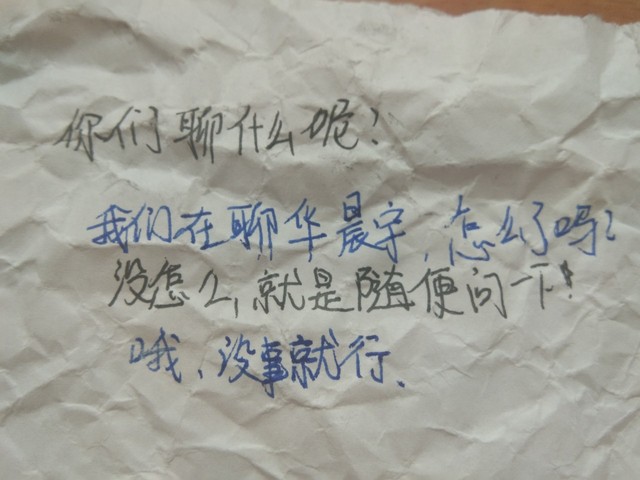 你们聊什么呢?
我们在聊华晨宇,怎么了吗?
没怎么,就是随便问一下!
哦、没事就行、